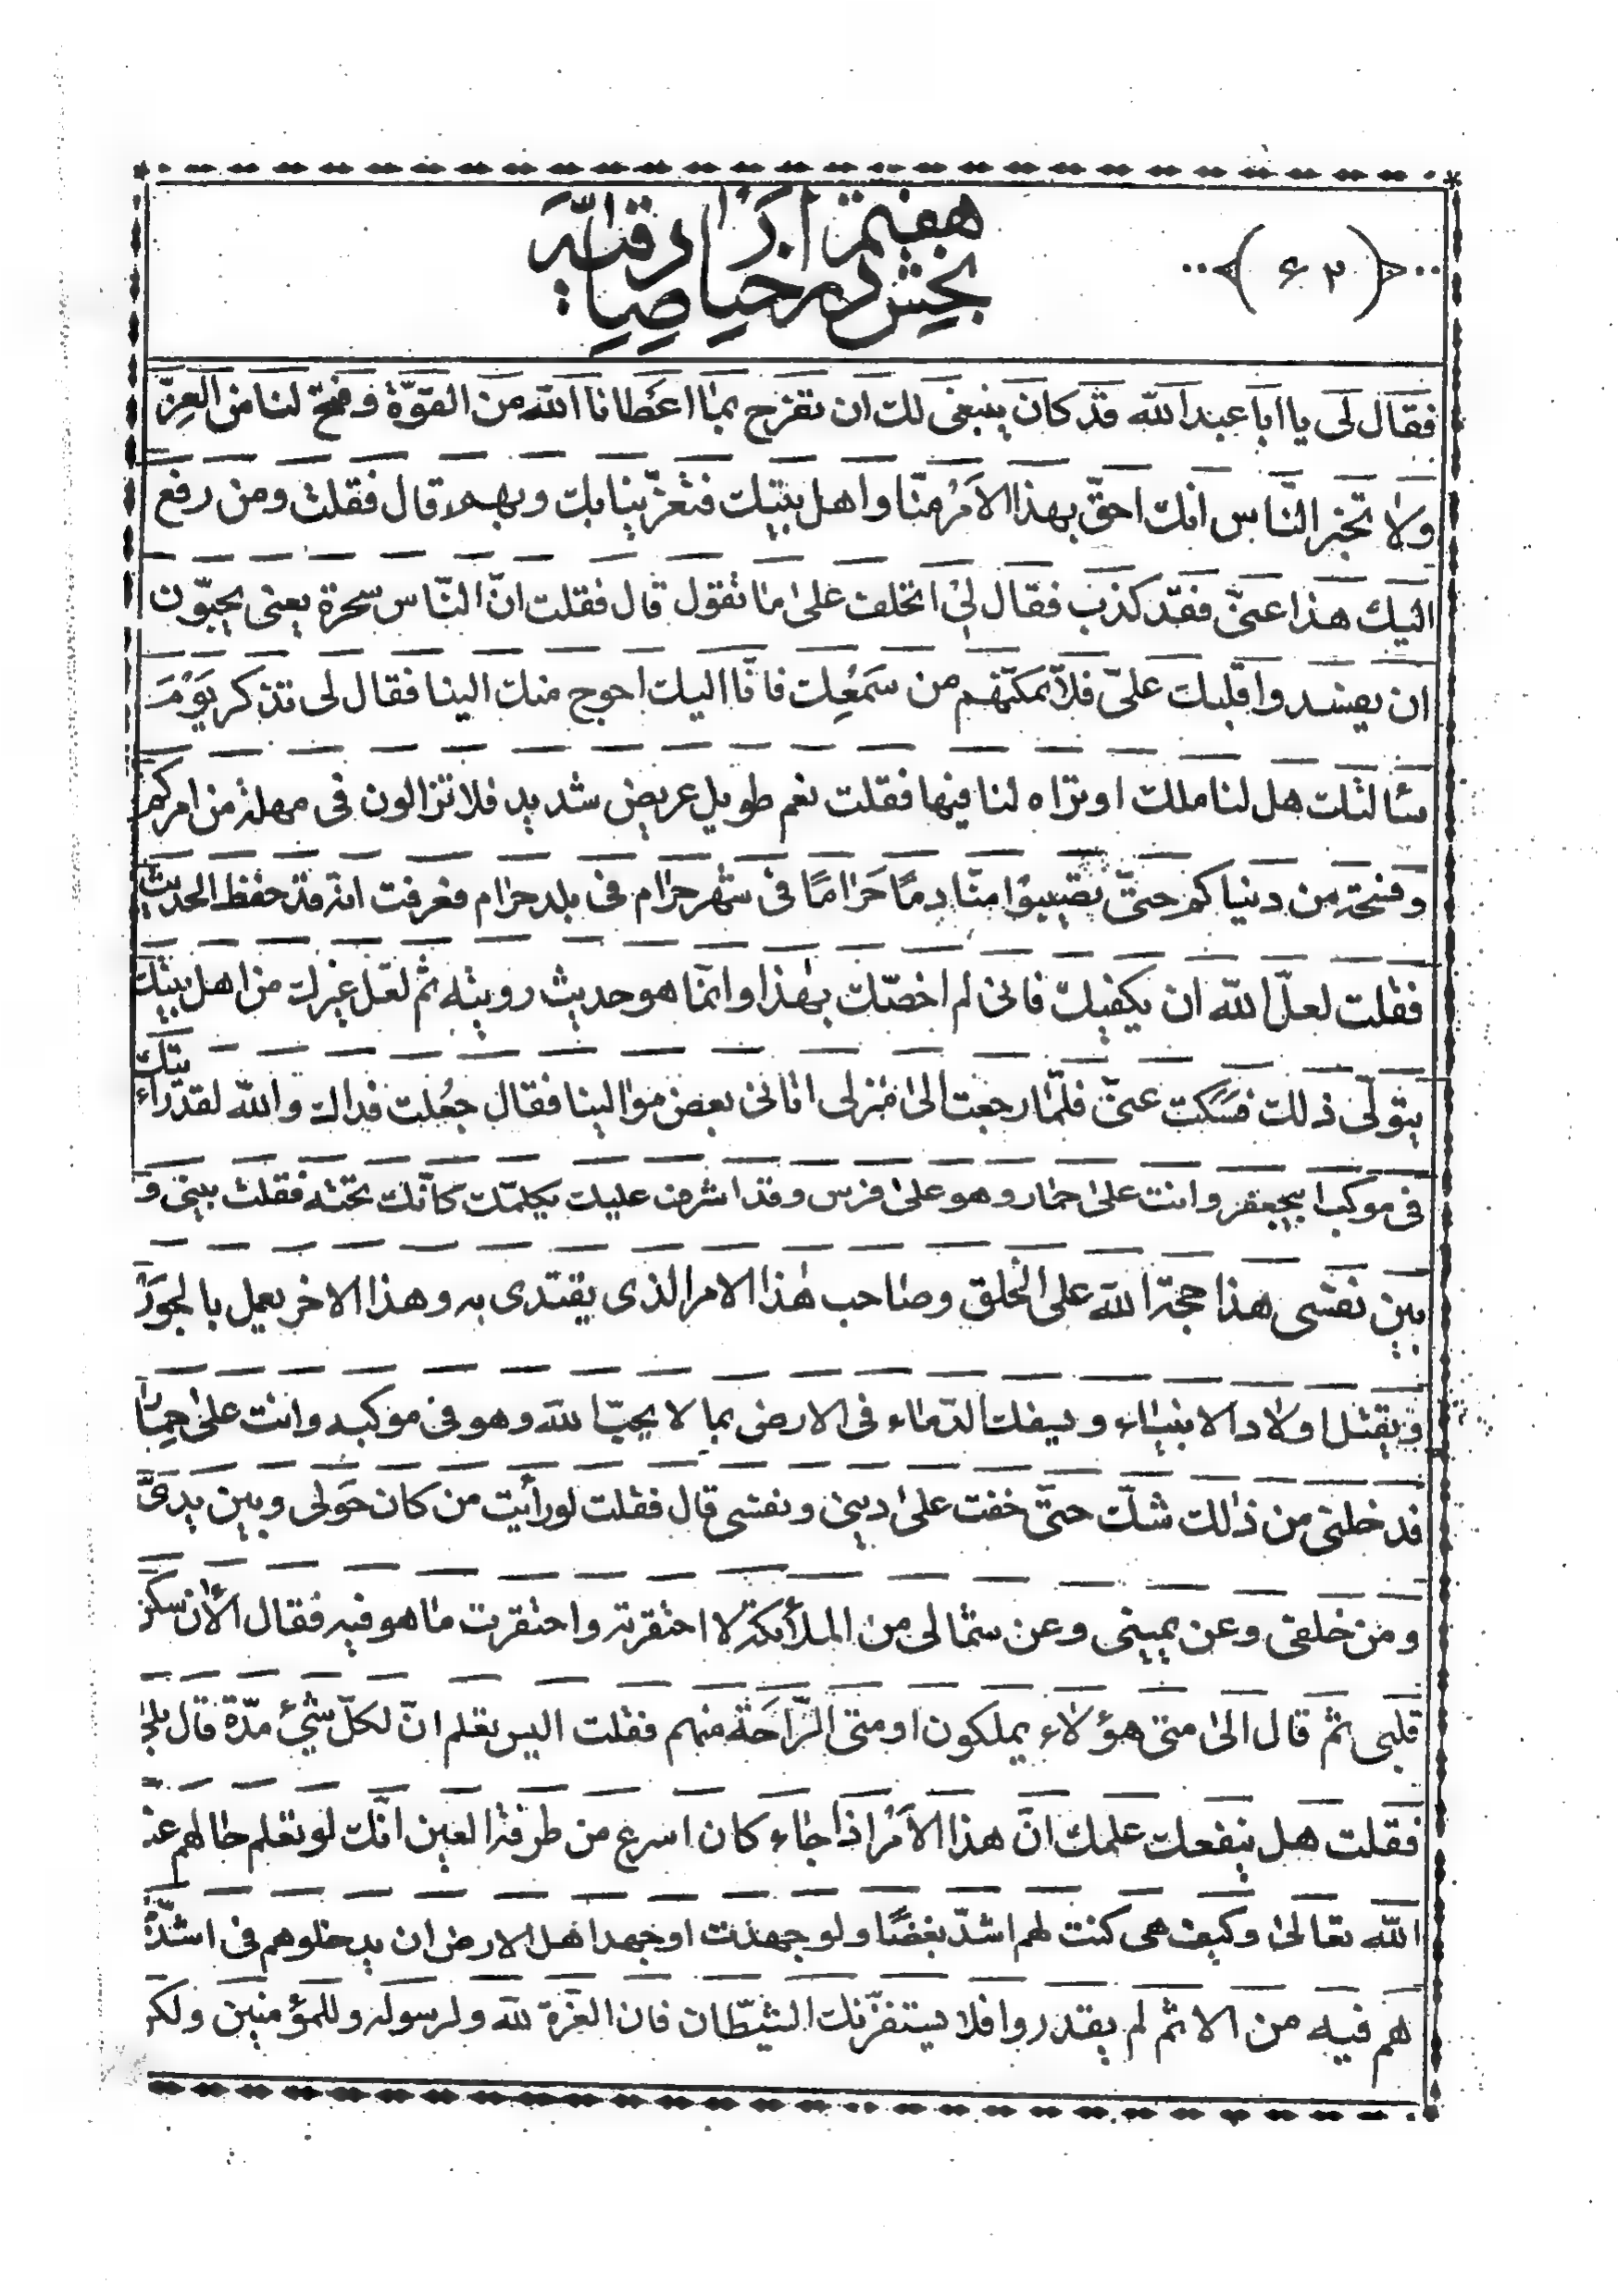 ﴿۶۲﴾
بخش هفتم
فقال لى يا ابا عبد الله قد كان ينبغى لك ان تفرح بما اعطانا الله من القوّة و فتح لنا من العزّ
ولا تخبر النّاس انّك احقّ بهذا الامر منّا و اهل بيتك فتغرّينا بك و بهم قال فقلت و من رفع
اليك هذا عنّى فقد كذب فقال لى اتحلف على ما تقول قال فقلت انّ النّاس سحرة يعنى يحبّون
ان يفسدوا قلبك علىّ فلا تمكّنهم من سمعك فانّا اليك احوج منك الينا فقال لى تذكر يوم
سألتك هل لنا ملك او تراه لنا فيها فقلت نعم طويل عريض شديد فلا تزالون فى مهلة من امركم
و فسحة من دنياكم حتّى تصيبوا منّا دمًا حرامًا فى شهر حرام فى بلد حرام فعرفت انه قد حفظ الحديث
فقلت لعلّ الله ان يكفيك فانى لم اخصّك بهذا و انّما هو حديث رويته ثم لعلّ غيرك من اهل بيتك
يتولّى ذلك فسكت عنّى فلمّا رجعت الى منزلى اتانى بعض موالينا فقال جعلت فداك و الله لقد رايتك
فى موكب ابيجعفر و انت على حمار و هو على فرس و قد اشرف عليك يكلمك كانّك تحته فقلت بينى و
بين نفسى هذا حجة الله على الخلق و صاحب هذا الامر الذى يقتدى به و هذا الاخر يعمل بالجور
و يقتل اولاد الانبياء و يسفك الدّماء فى الارض بما لا يحبّ الله و هو فى موكبه و انت على حمار
فدخلنى من ذلك شكّ حتّى خفت على دينى و نفسى قال فقلت لو رأيت من كان حولى و بين يدىّ
و من خلفى و عن يمينى و عن شمالى من الملائكة لاحتقرته و احتقرت ما هو فيه فقال الآن سكن
قلبى ثم قال الى متى هؤلاء يملكون او متى الرّاحة منهم فقلت اليس تعلم انّ لكلّ شىء مدّة قال بلى
فقلت هل ينفعك علمك انّ هذا الامر اذا جاء كان اسرع من طرفة العين انّك لو تعلم حالهم عند
الله تعالى و كيف هى كنت لهم اشدّ بغضًا و لو جهدت او جهد اهل الارض ان يدخلوهم فى اشدّ
هم فيه من الاثم لم يقدروا فلا يستفزّنّك الشّيطان فان العزة لله و لرسوله و للمؤمنين و لكن